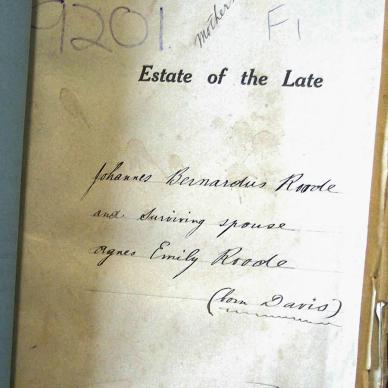 9201 mother F1
Estate of the Late
Johannes Bernardus Roode
and surviving spouse
Agnes Emily Roode
(born Davis)